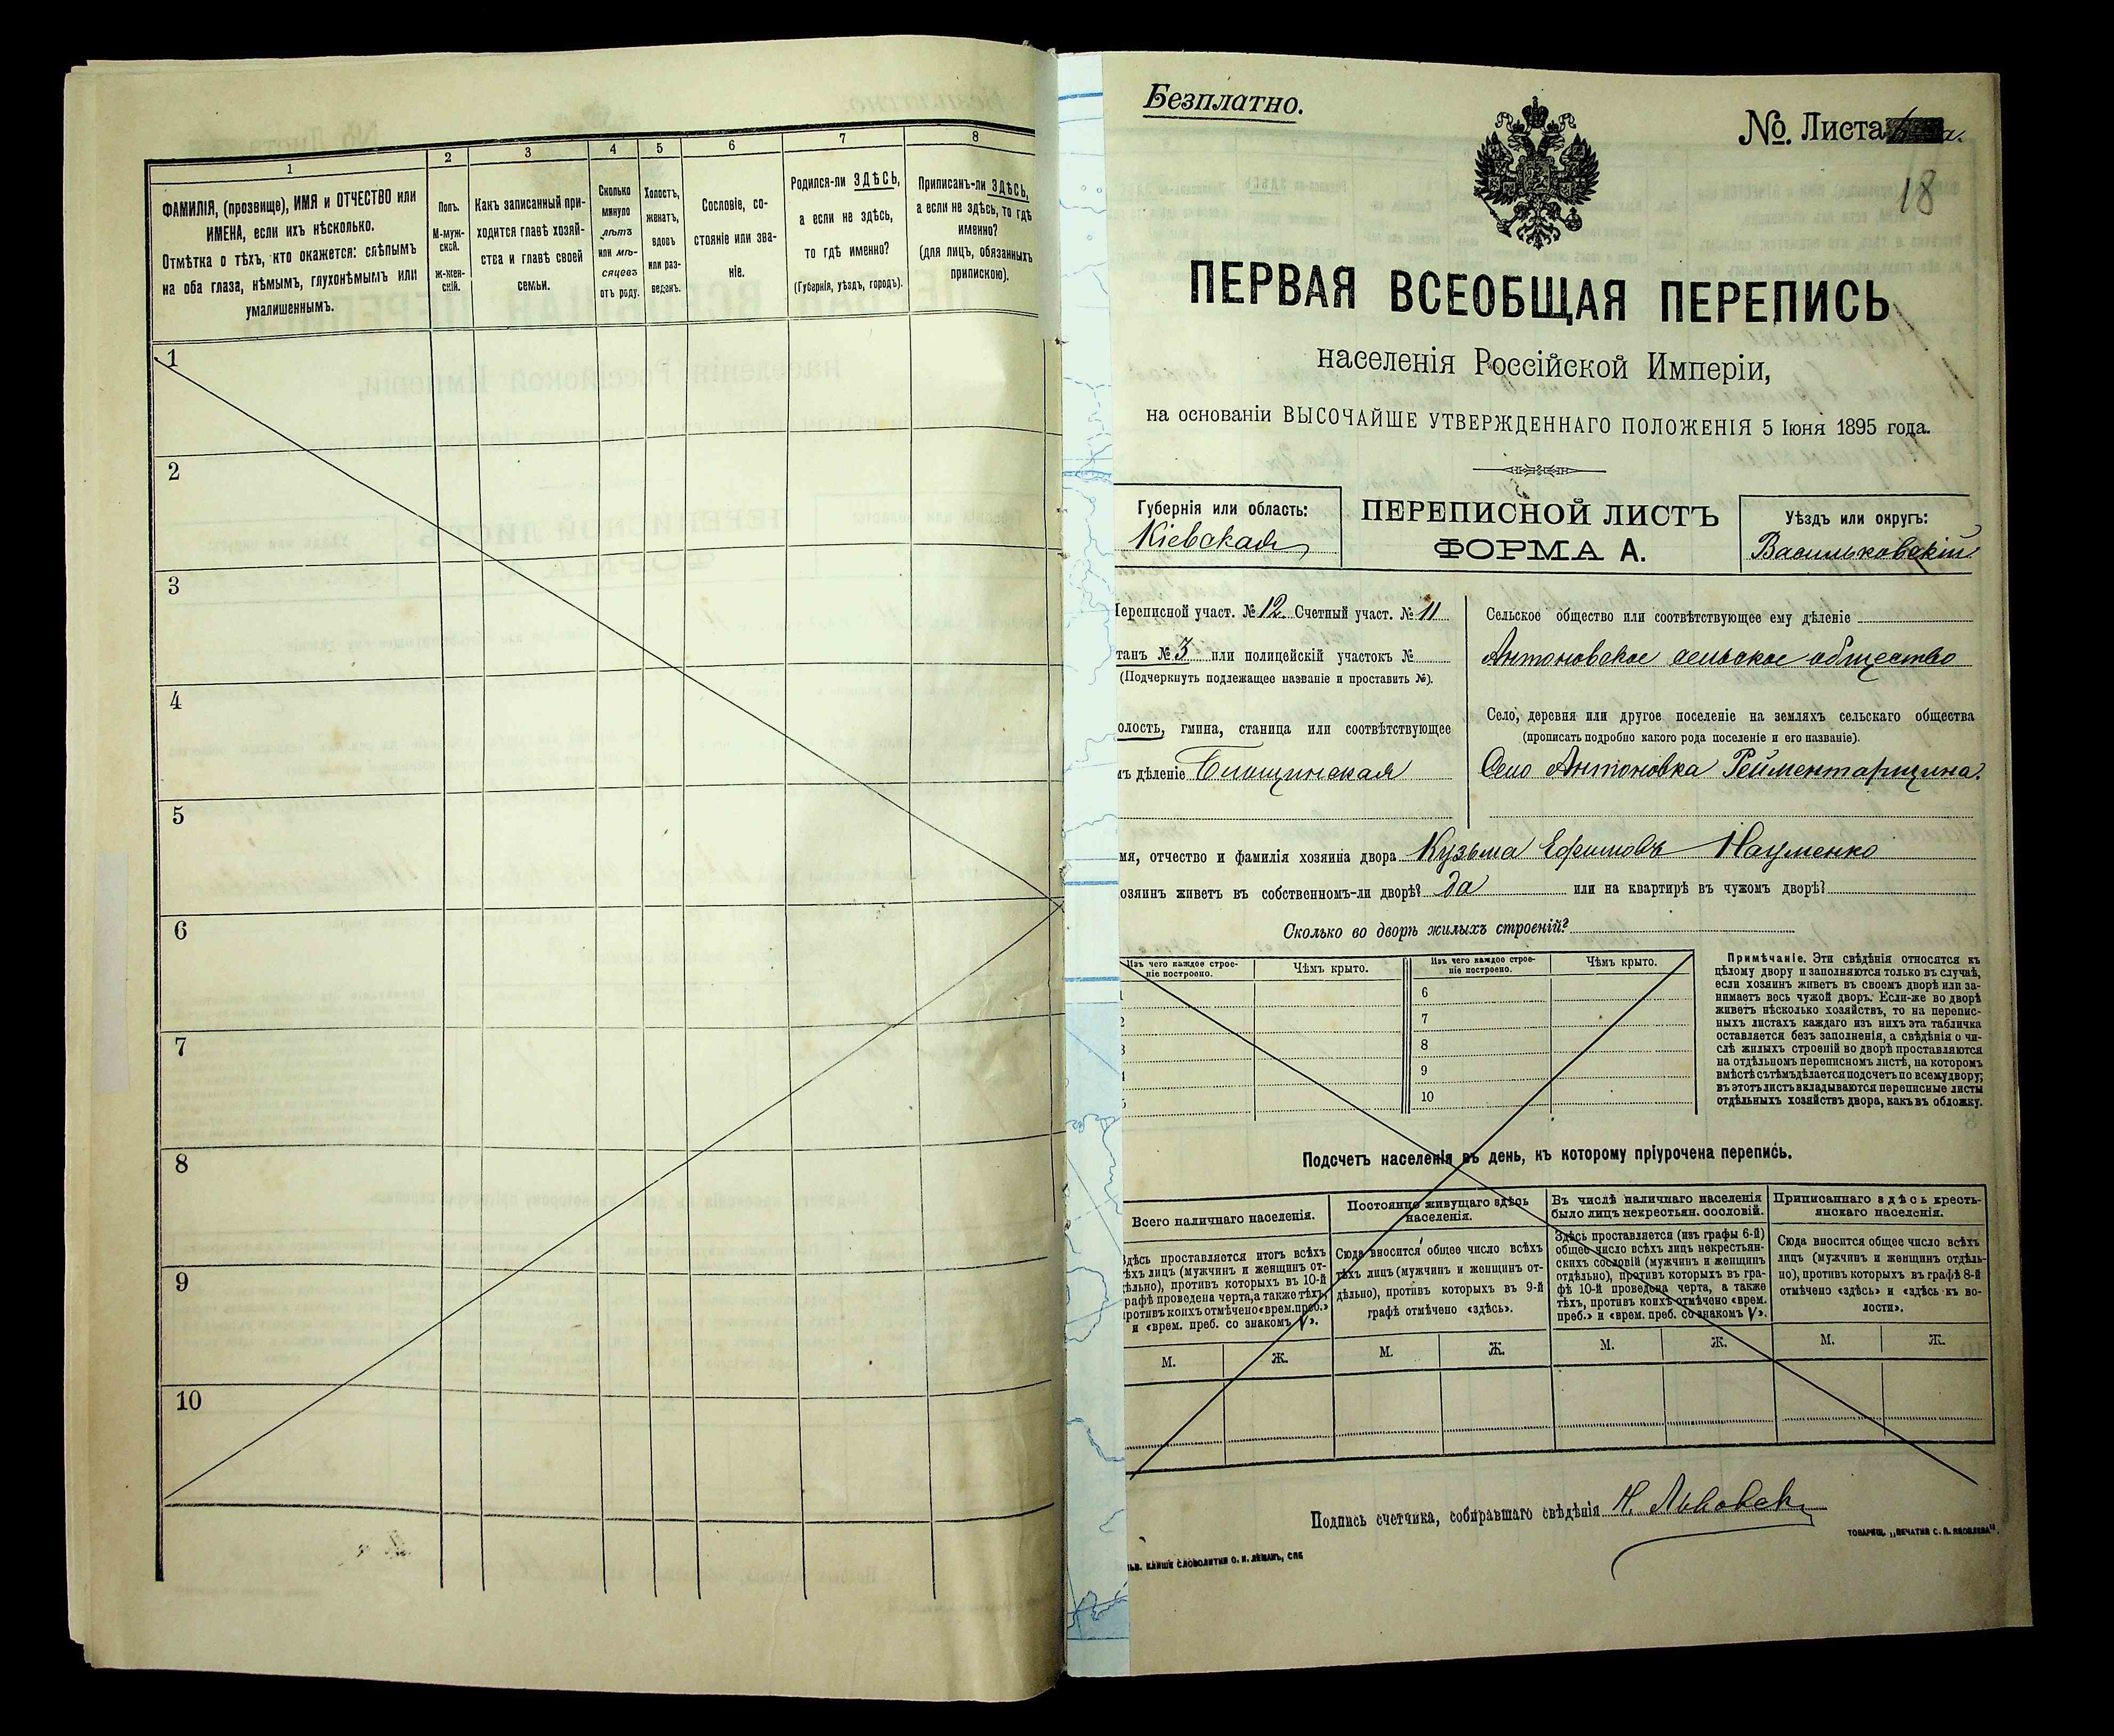 1
2
3
4
5
6
7
8
ФАМИЛІЯ, (прозвище), ИМЯ и ОТЧЕСТВО или
ИМЕНА, если ихъ нѣсколько.
Отмѣтка о тѣхъ, кто окажется: слѣпымъ
на оба глаза, нѣмымъ, глухонѣмымъ или
умалишеннымъ.
Полъ.
М-муж-
ской.
ж-жен-
скій.
Какъ записанный при-
ходится главѣ хозяй-
ства и главѣ своей
семьи.
Сколько
минуло
лѣтъ
или мѣ-
сяцевъ
отъ роду.
Холостъ,
женатъ,
вдовъ
или раз-
веденъ.
Сословіе, со-
стояніе или зва-
ніе.
Родился-ли ЗДѢСЬ,
а если не здѣсь,
то гдѣ именно?
(Губернія, уѣздъ, городъ).
Приписанъ-ли ЗДѢСЬ,
а если не здѣсь, то гдѣ
именно?
(для лицъ, обязанныхъ
припискою).
1
2
3
4
5
6
7
8
9
10
Безплатно.
№. Листа
18
ПЕРВАЯ ВСЕОБЩАЯ ПЕРЕПИСЬ
населенія Россійской Имперіи,
на основаніи ВЫСОЧАЙШЕ УТВЕРЖДЕННАГО ПОЛОЖЕНІЯ 5 Іюня 1895 года.
Губернія или область:
Кіевская
ПЕРЕПИСНОЙ ЛИСТЪ
ФОРМА А.
Уѣздъ или округъ:
Васильковскій
Переписной участ. № 12 Счетный участ. № 11
танъ № 3 или полицейскій участокъ №
(Подчеркнуть подлежащее названіе и проставить №).
олость, гмина, станица или соотвѣтствующее
мъ дѣленіе
Сельское общество или соотвѣтствующее ему дѣленіе
Антоновское сельское общество
Село, деревня или другое поселеніе на земляхъ сельскаго общества
(прописать подробно какого рода поселеніе и его названіе).
Село Антоновка Рейментарщина.
мя, отчество и фамилія хозяина двора Кузьма Ефимовъ Науменко
озяинъ живетъ въ собственномъ-ли дворѣ? да или на квартирѣ въ чужомъ дворѣ?
Сколько во дворѣ жилыхъ строеній?
Изъ чего каждое строе-
ніе построено.
Чѣмъ крыто.
Изъ чего каждое строе-
ніе построено.
Чѣмъ крыто.
6
7
8
9
10
Примѣчаніе. Эти свѣдѣнія относятся къ
цѣлому двору и заполняются только въ случаѣ,
если хозяинъ живетъ въ своемъ дворѣ или за-
нимаетъ весь чужой дворъ. Если-же во дворѣ
живетъ нѣсколько хозяйствъ, то на перепис-
ныхъ листахъ каждаго изъ нихъ эта табличка
оставляется безъ заполненія, а свѣдѣнія о чи-
слѣ жилыхъ строеній во дворѣ проставляются
на отдѣльномъ переписномъ листѣ, на которомъ
вмѣстѣ съ тѣмъ дѣлается подсчетъ по всему двору;
въ этотъ листъ вкладываются переписные листы
отдѣльныхъ хозяйствъ двора, какъ въ обложку.
Подсчетъ населенія въ день, къ которому пріурочена перепись.
Всего наличнаго населенія.
Здѣсь проставляется итогъ всѣхъ
ѣхъ лицъ (мужчинъ и женщинъ от-
дѣльно), противъ которыхъ въ 10-й
графѣ проведена черта, а также тѣхъ,
противъ коихъ отмѣчено «врем. преб.»
и «врем. преб. со знакомъ V».
Постоянно живущаго здѣсь
населенія.
Сюда вносится общее число всѣхъ
тѣхъ лицъ (мужчинъ и женщинъ от-
дѣльно), противъ которыхъ въ 9-й
графѣ отмѣчено «здѣсь».
Въ числѣ наличнаго населенія
было лицъ некрестьян. сословій.
Здѣсь проставляется (изъ графы 6-й)
общее число всѣхъ лицъ некрестьян-
скихъ сословій (мужчинъ и женщинъ
отдѣльно), противъ которыхъ въ гра-
фѣ 10-й проведена черта, а также
тѣхъ, противъ коихъ отмѣчено «врем.
преб.» и «врем. преб. со знакомъ V».
Приписаннаго здѣсь кресть-
янскаго населенія.
Сюда вносится общее число всѣхъ
лицъ (мужчинъ и женщинъ отдѣль-
но), противъ которыхъ въ графѣ 8-й
отмѣчено «здѣсь» и «здѣсь къ во-
лости».
М. Ж. М. Ж. М. Ж. М. Ж.
Подпись счетчика, собиравшаго свѣдѣнія
ТОВАРИЩ. „ПЕЧАТНЯ С. П. ЯКОВЛЕВА“.
КЛИШЕ СЛОВОЛИТНИ О. И. ЛЕМАНЪ, СПБ